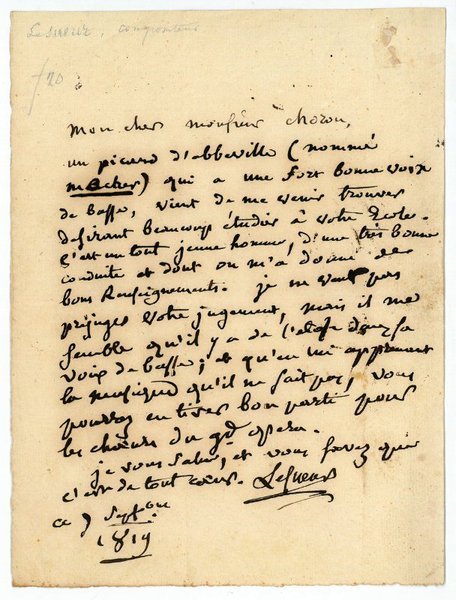 Lesueur, compositeur
/20
Mon cher monsieur choron,
un picard d'abbeville (nommé
macker) qui a une fort bonne voix
de basse, vient de me venir trouver
desirant beaucoup étudier à votre Ecole.
C'est un tout jeune homme, d'une très bonne
conduite et dont on m'a donné de
bons Renseignements. je ne veux pas
préjuger votre jugement, mais il me
semble qu'il y a de l'etoffe dans sa
voix de basse; et qu'en lui apprenant
la musique qu'il ne sait pas, vous
pourrez en tirer bon parti pour
les choeurs du gd opera.
je vous salue, et vous savez que
c'est de tout coeur. Lesueur
ce 7 Septbre
1819